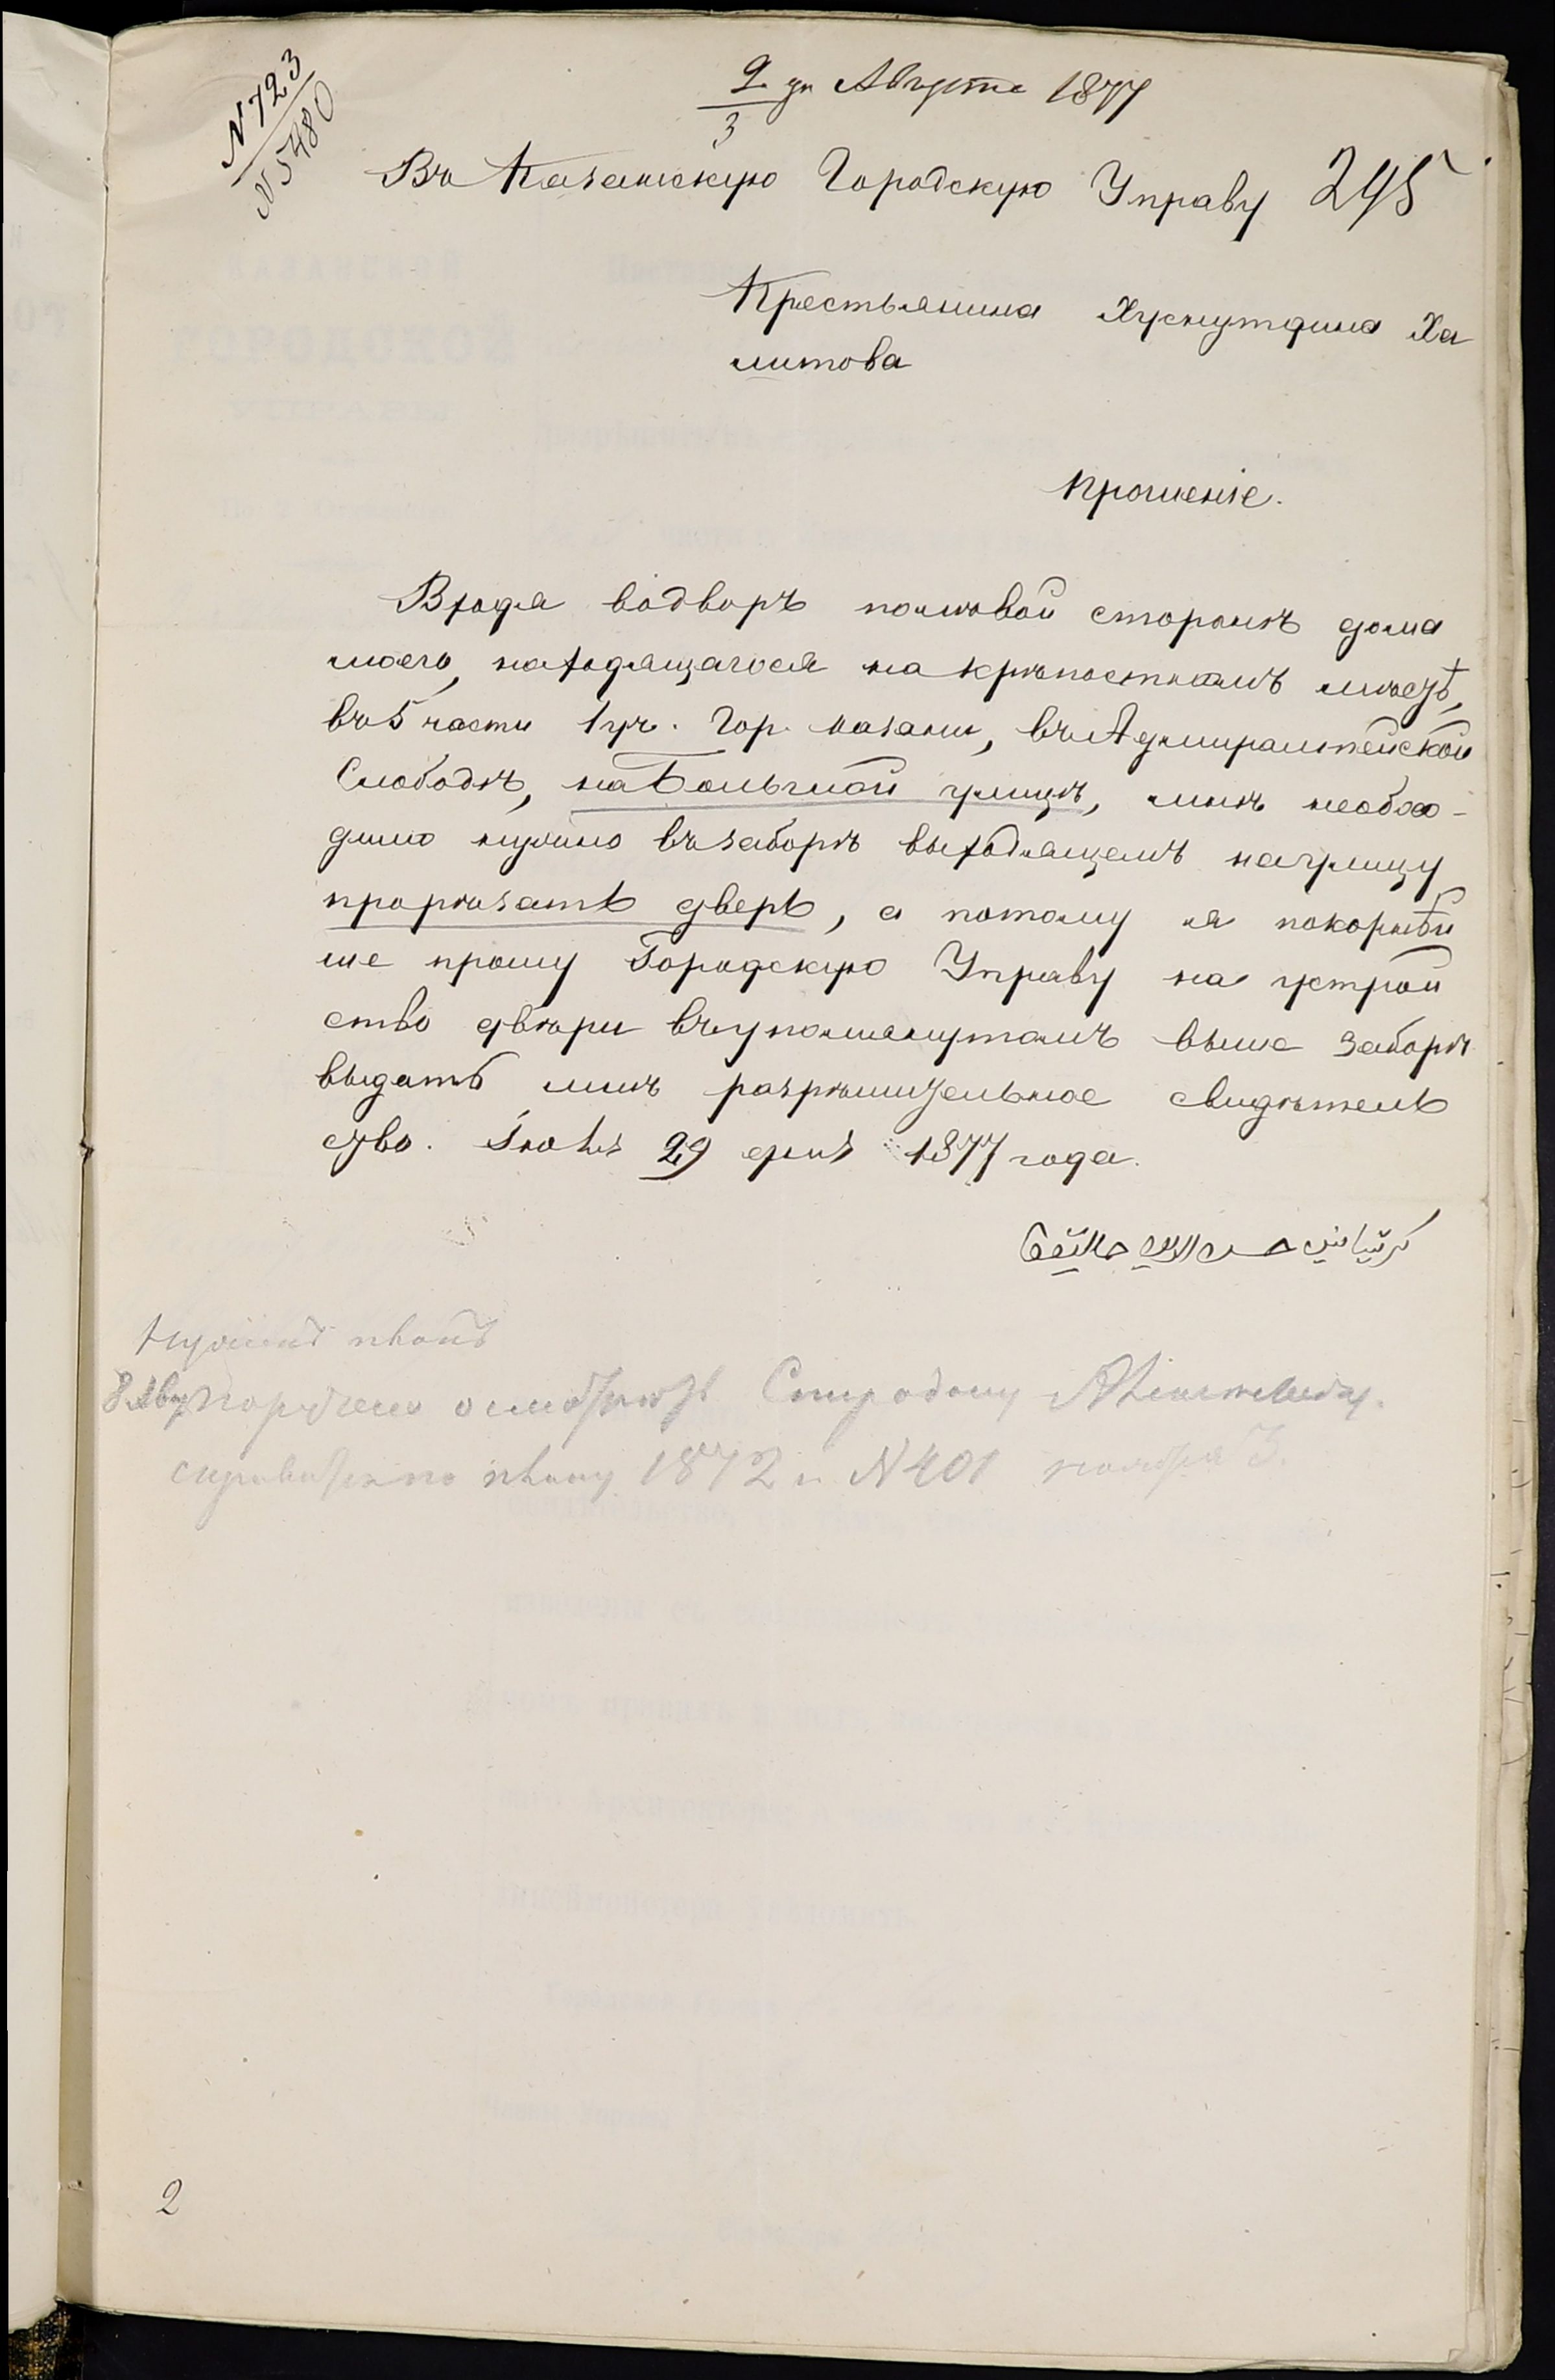 N 723
N 5480
2 го Августа 1877
3
Въ Казанскую Городскую Управу 295
Крестьянина Хуснутдина Ха
литова
прошеніе.
Входя водворъ полѣвой сторонѣ дома
моего, находящагося на крѣпостномъ мѣстѣ,
въ 5 части 1 уч. Гор. Казани, въ Адмиралтейской
Слободѣ, на Большой улицѣ, мнѣ необхо-
димо нужно въ заборѣ выходящемъ на улицу
прорѣзать дверь, а потому я покорнѣй
ше прошу Городскую Управу на устрой
ство двѣри въ упомянутомъ выше заборѣ
выдать мнѣ разрѣшительное свидѣтель
ство. Іюля 29 дня 1877 года.
كرستيانين حسن الدين خاليتوف
Нуженъ планъ
8 Авг поручено осмотрѣть
справиться по плану 1872 г. N 401 ноября 3.
2